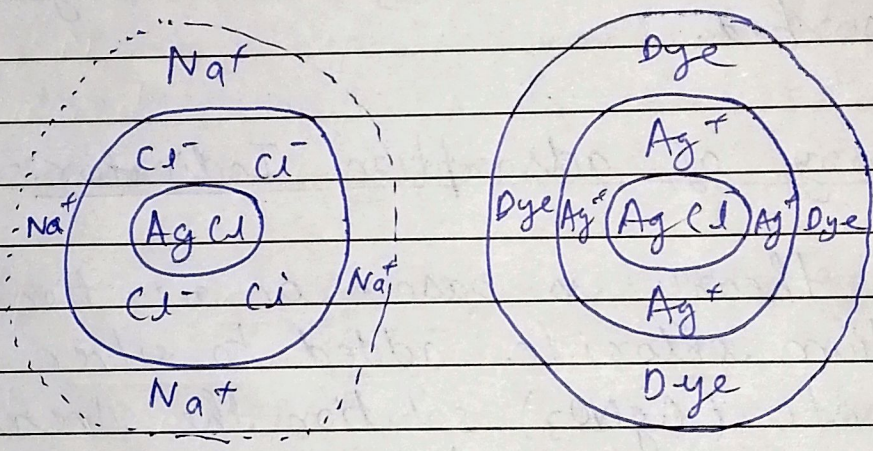 Na⁺
Cl⁻ Cl⁻
Na⁺ AgCl
Cl⁻ Cl⁻ Na⁺
Na⁺
Dye
Ag⁺
Dye Ag⁺ AgCl Ag⁺ Dye
Ag⁺
Dye